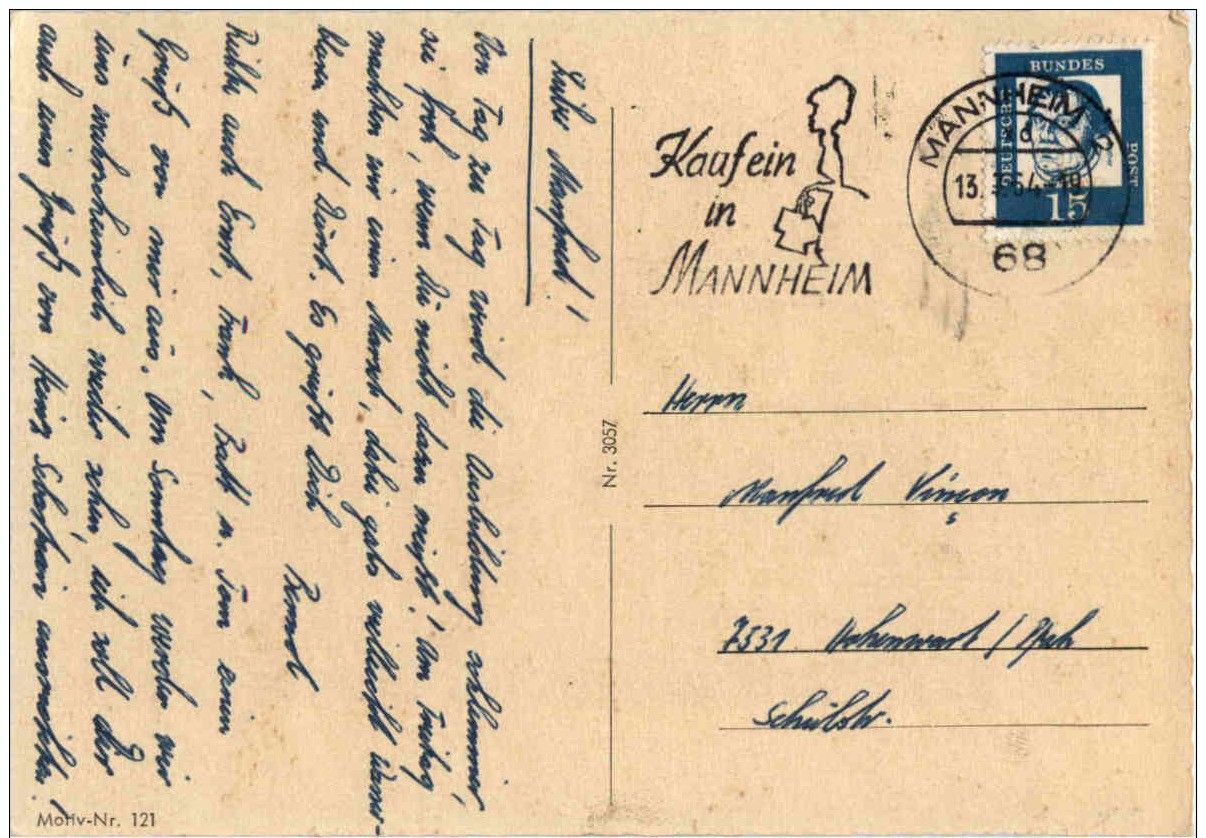 Lieber Manfred!
Von Tag zu Tag wird die Ausbildung schlimmer,
sei froh, wenn Du nicht dazu mußt! Am Freitag
machten wir einen Marsch, dabei gab's vielleicht
und Durst. Es grüßt Dich
Bernd
Richte auch Ernst, Frank, u. Toni einen
Gruß von mir aus. Am Sonntag werden wir
uns wahrscheinlich wieder sehen, ich soll Dir
auch einen Gruß von ausrichten!
Motiv-Nr. 121
Nr. 3057
Kauf ein
in
MANNHEIM
MANNHEIM 2
d
13. 64-19
68
DEUTSCHE
BUNDES
POST
15
Herrn
Manfred Simon
7531 Hohenwart / Pfch
Schulstr.